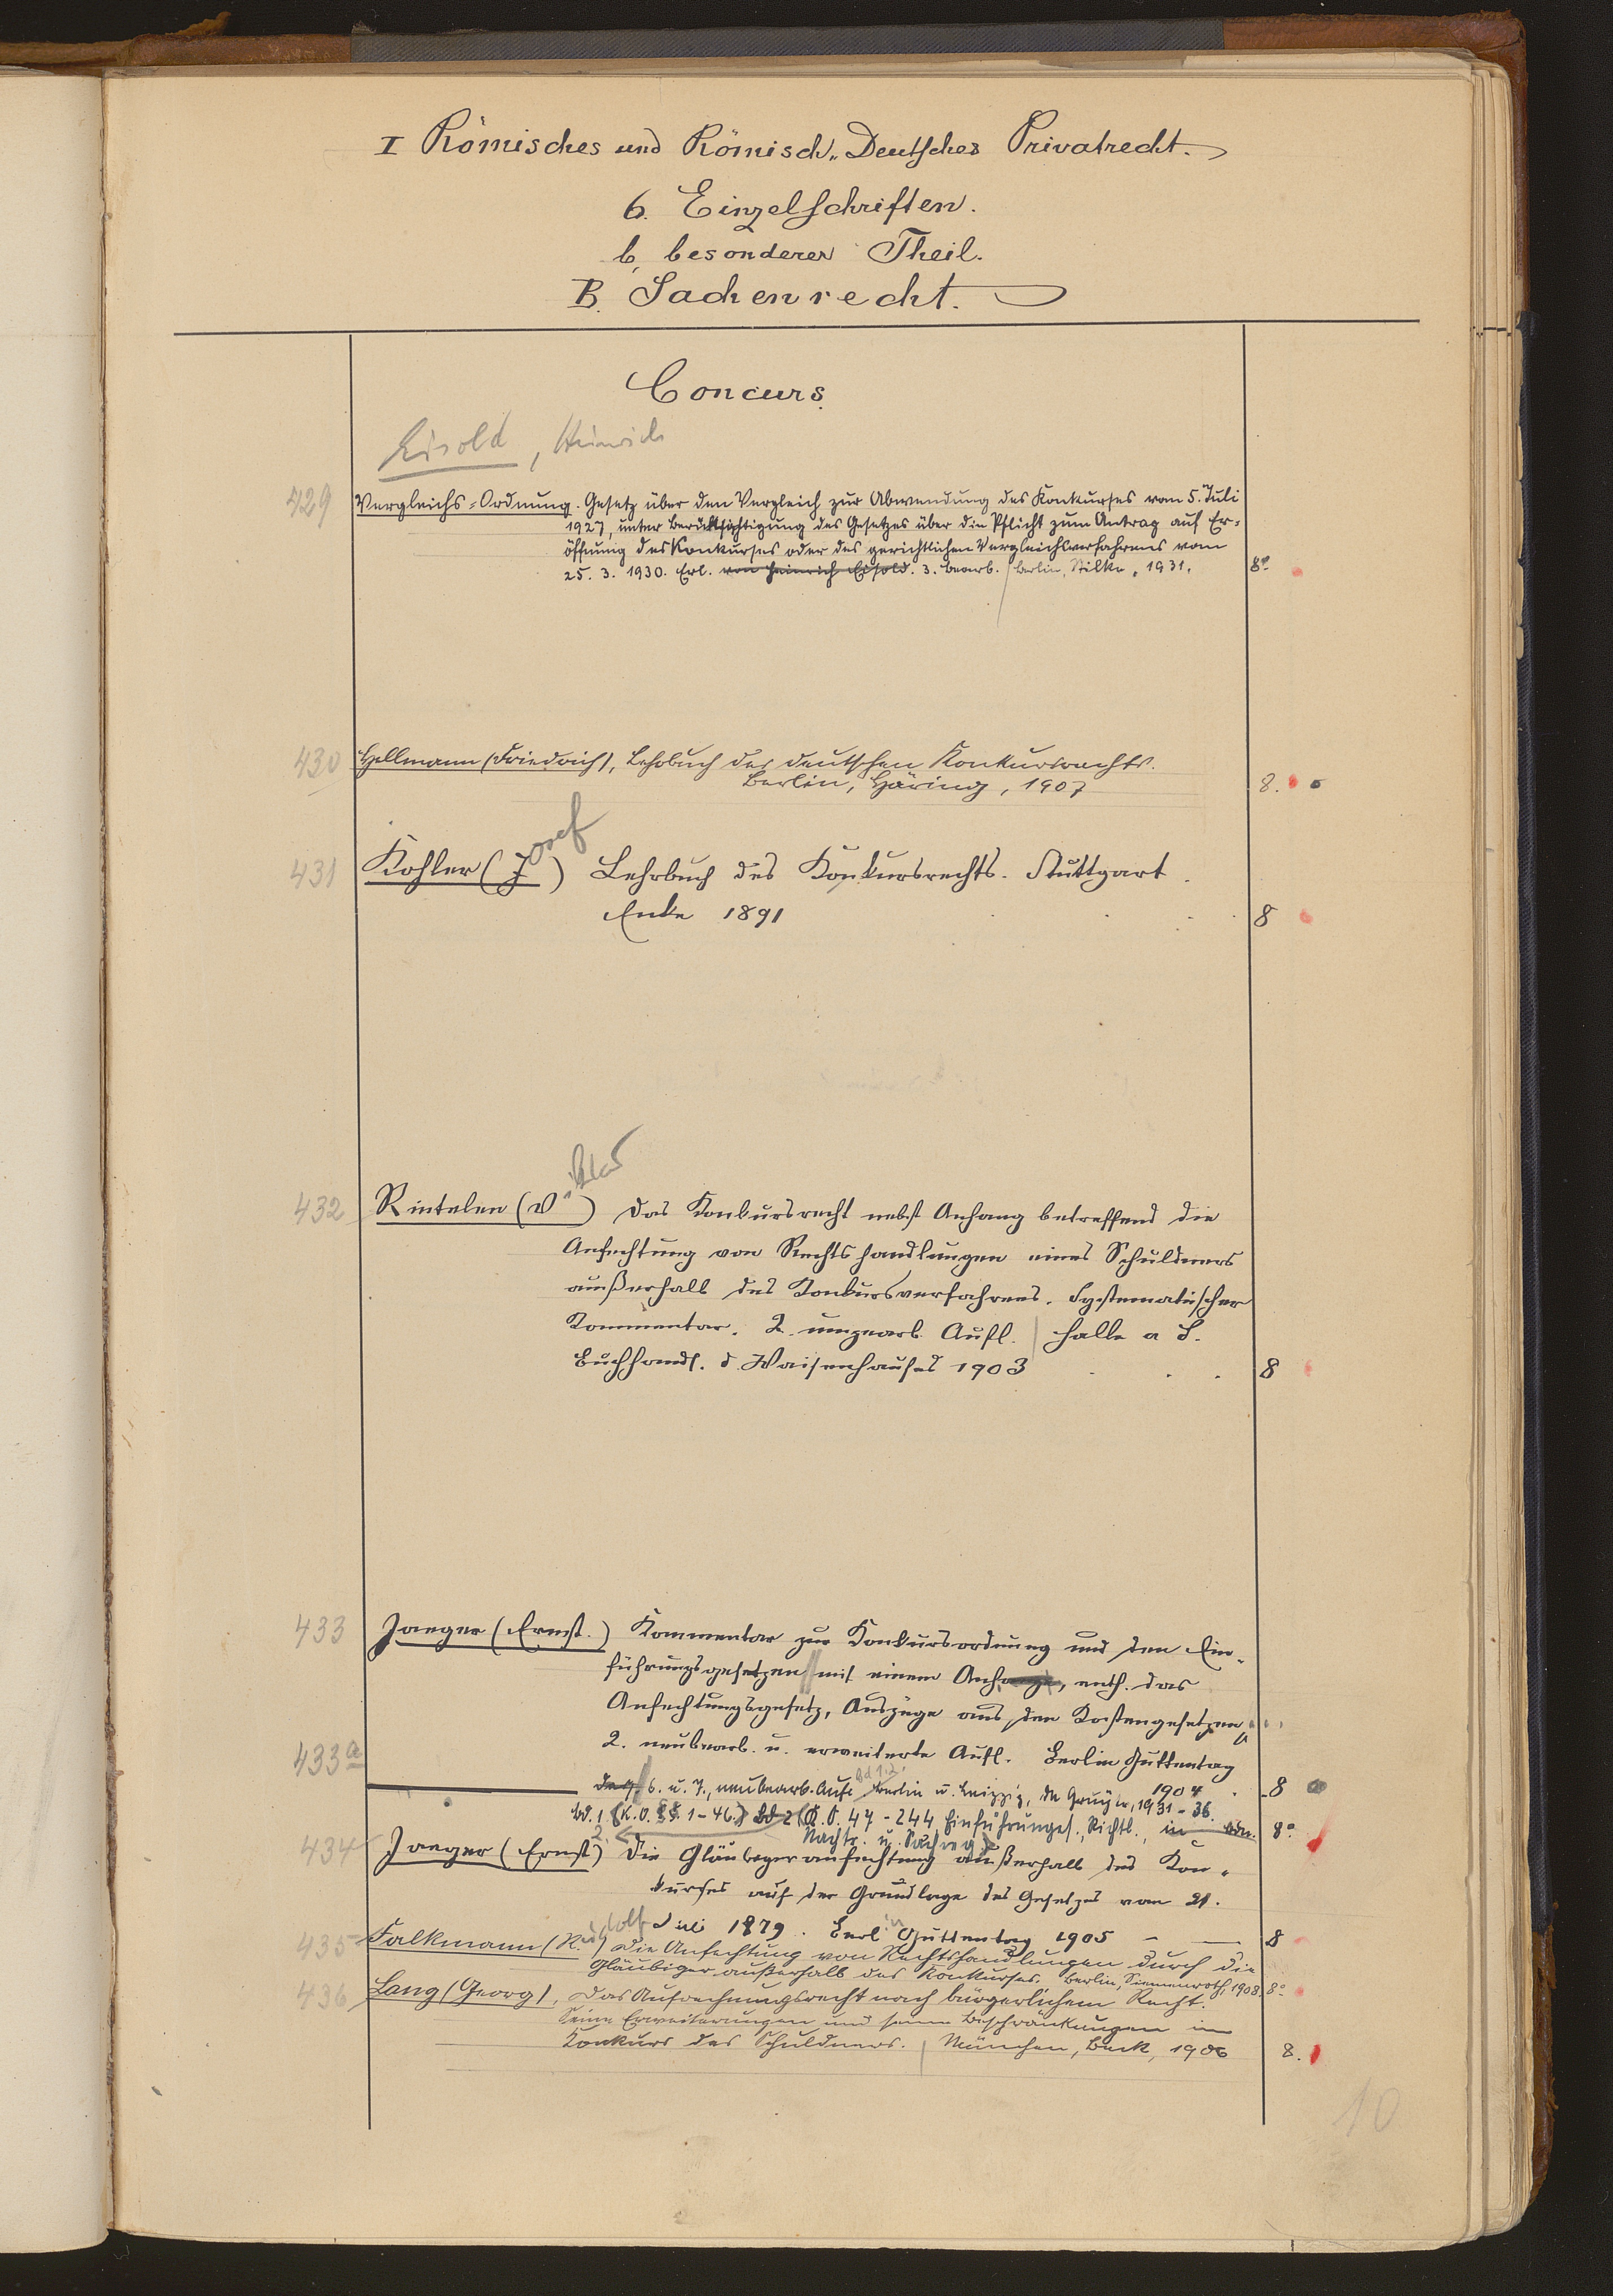 I Römisches und Römisch-Deutsches Privatrecht.
6. Einzelschriften.
b, besonderer Theil.
B. Sachenrecht.
Concurs.
Eisold, Heinrich
429 Vergleichs-Ordnung. Gesetz über den Vergleich zur Abwendung des Konkurses vom 5. Juli
1927, unter Berücksichtigung des Gesetzes über die Pflicht zum Antrag auf Er-
öffnung des Konkurses oder des gerichtlichen Vergleichsverfahrens vom
25. 3. 1930. Erl. von Heinrich Eisold. 3. bearb. Berlin, Stilke, 1931. 8°
430 Hellmann (Friedrich), Lehrbuch des deutschen Konkursrechts.
Berlin, Häring, 1907 8.
431 Kohler (Josef) Lehrbuch des Konkursrechts. Stuttgart
Enke 1891 8
432 Rintelen (V) Das Konkursrecht nebst Anhang betreffend die
Anfechtung von Rechtshandlungen eines Schuldners
außerhalb des Konkursverfahrens. Systematischer
Kommentar. 2. umgearb. Aufl. Halle a S.
Buchhandl. d. Waisenhauses 1903 8
433 Jaeger (Ernst.) Kommentar zur Konkursordnung und den Ein-
führungsgesetzen mit einem Anhange, enth. das
Anfechtungsgesetz, Auszüge aus den Kostengesetzen
2. neubearb. u. erweiterte Aufl. Berlin Guttentag
1904 8
433a dass. 6. u. 7., neubearb. Aufl. Bd 1.2. Berlin u. Leipzig, de Gruyter, 1931-36.
Bd. 1. (K.O. §§. 1-46.) Bd 2 (K.O. 47-244 Einführungsges., Richtl., 8°
Nachtr. u. Sachreg.)
434 Jaeger (Ernst) Die Gläubigeranfechtung außerhalb des Kon-
kurses auf der Grundlage des Gesetzes vom 21.
Juli 1879. Berlin Guttentag 1905 8
435 Falkmann (Rudolf) Die Anfechtung von Rechtshandlungen durch die
Gläubiger außerhalb des Konkurses. Berlin, Siemenroth, 1908. 8°
436 Lang (Georg), Das Aufrechnungsrecht nach bürgerlichem Recht.
Seine Erweiterungen und seine Beschränkungen im
Konkurs des Schuldners. München, Beck, 1906 8.
10